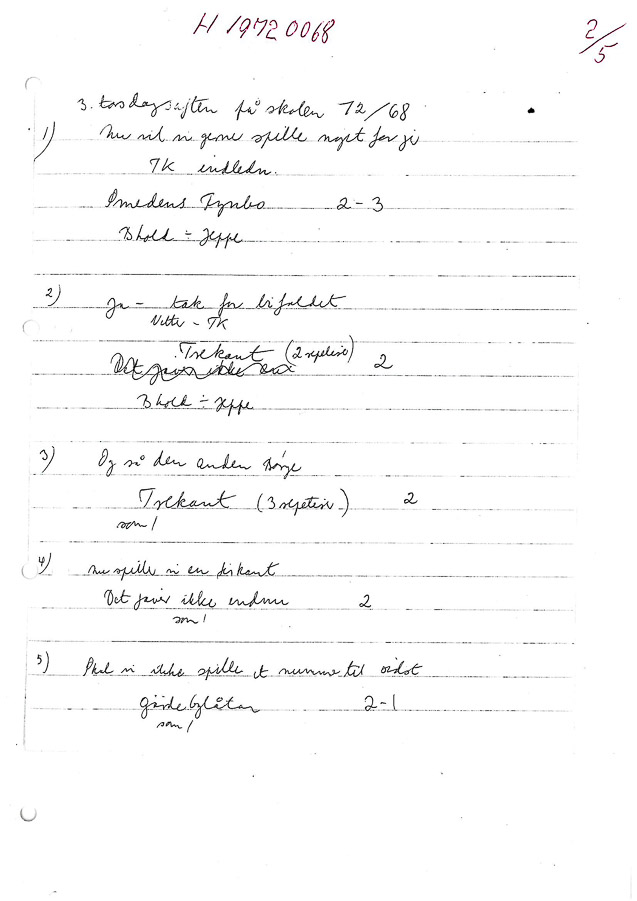 H 19720068
2/5
3. torsdagsaften på skolen 72/68
1) Nu vil vi gerne spille noget for je
TK indledn.
Imedens Fynbo 2-3
B hold ÷ Jeppe
2) Ja - tak for bifaldet
TK
Trekant (2 repetive) 2
Det gaver ikke
B hold ÷ Jeppe
3) Og så den anden
Trekant (3 repetive) 2
som 1
4) Nu spille vi en firkant
Det gaver ikke endnu 2
som 1
5) Skal vi ikke spille et numme til sidst
Gärdebylåtan 2-1
som 1